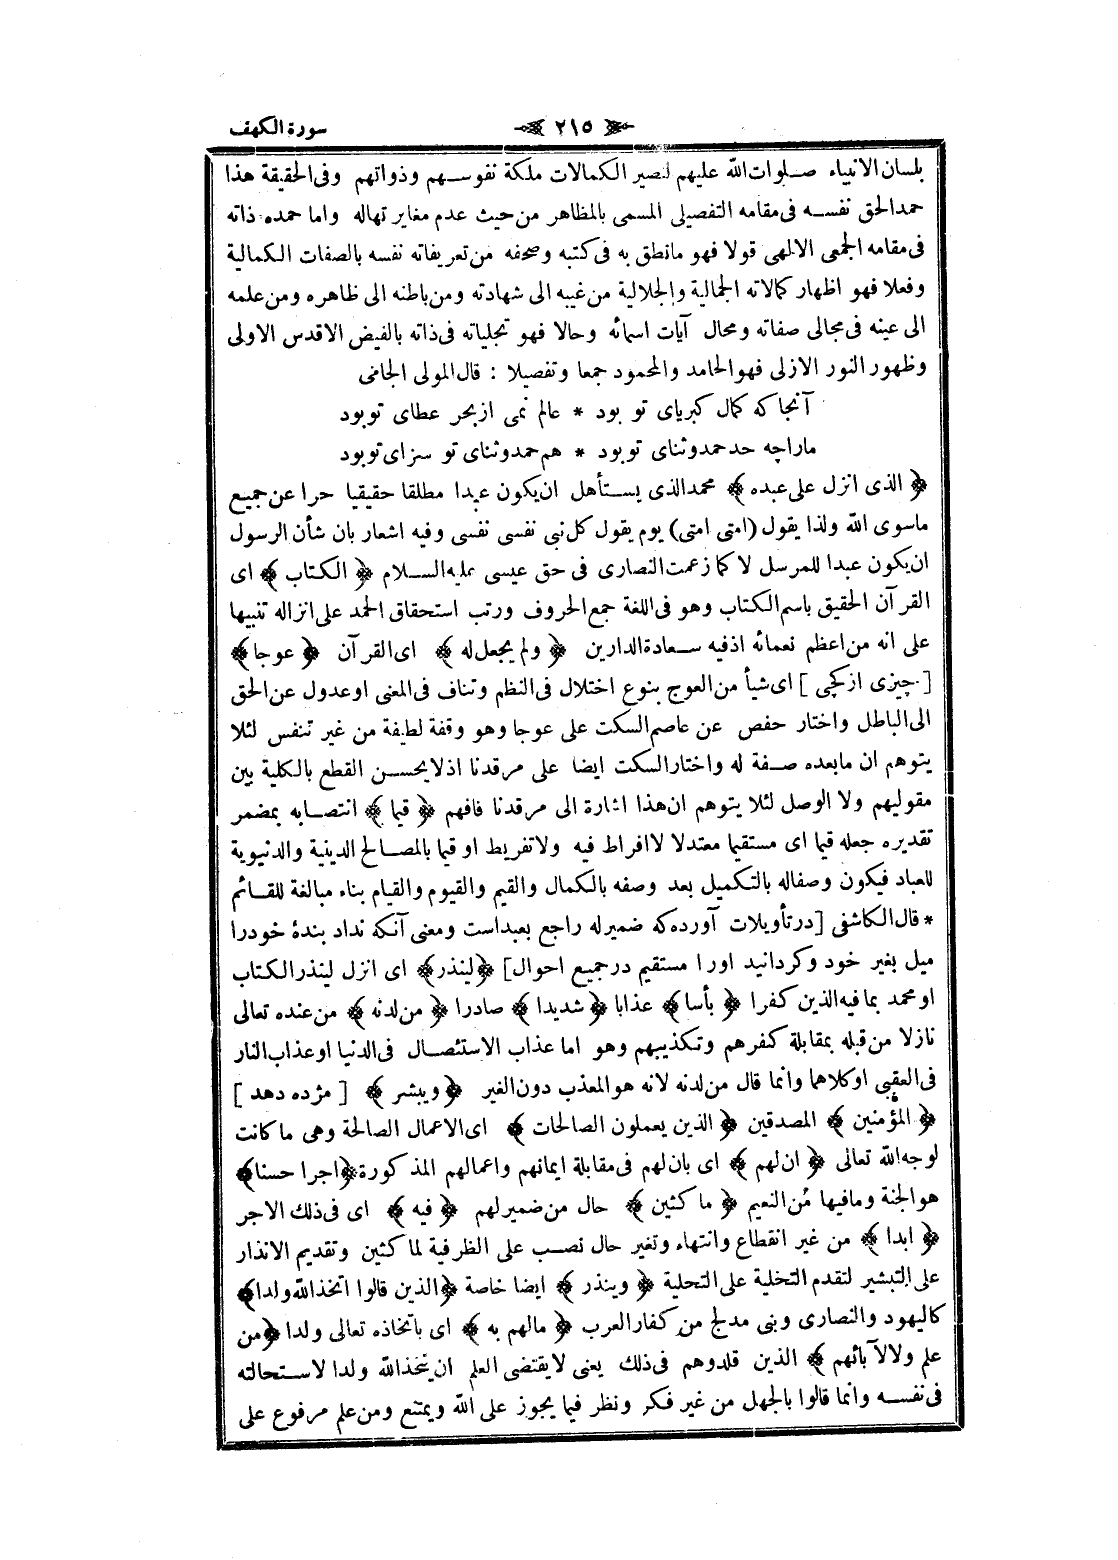 سورة الكهف ﴿ ٢١٥ ﴾
بلسان الانبياء صلوات الله عليهم لتصير الكمالات ملكة نفوسهم وذواتهم وفى الحقيقة هذا
حمد الحق نفسه فى مقامه التفصيلى المسمى بالمظاهر من حيث عدم مغايرتهاله واما حمده ذاته
فى مقامه الجمعى الالهى قولا فهو مانطق به فى كتبه وصحفه من تعريفاته نفسه بالصفات الكمالية
وفعلا فهو اظهار كمالاته الجمالية والجلالية من غيبه الى شهادته ومن باطنه الى ظاهره ومن علمه
الى عينه فى مجالى صفاته ومحال آيات اسمائه وحالا فهو تجلياته فى ذاته بالفيض الاقدس الاولى
وظهور النور الازلى فهو الحامد والمحمود جمعا وتفصيلا : قال المولى الجامى
آنجا كه كمال كبرياى تو بود * عالم نمى از بحر عطاى تو بود
مارا چه حد حمد وثناى تو بود * هم حمد وثناى تو سزاى تو بود
﴿ الذى انزل على عبده ﴾ محمد الذى يستأهل ان يكون عبدا مطلقا حقيقيا حرا عن جميع
ماسوى الله ولذا يقول (امتى امتى) يوم يقول كل نبى نفسى نفسى وفيه اشعار بان شأن الرسول
ان يكون عبدا للمرسل لا كما زعمت النصارى فى حق عيسى عليه السلام ﴿ الكتاب ﴾ اى
القرآن الحقيق باسم الكتاب وهو فى اللغة جمع الحروف ورتب استحقاق الحمد على انزاله تنبيها
على انه من اعظم نعمائه اذفيه سعادة الدارين ﴿ ولم يجعل له ﴾ اى القرآن ﴿ عوجا ﴾
[ چيزى از كجى ] اى شيأ من العوج بنوع اختلال فى النظم وتناف فى المعنى او عدول عن الحق
الى الباطل واختار حفص عن عاصم السكت على عوجا وهو وقفة لطيفة من غير تنفس لئلا
يتوهم ان مابعده صفة له واختار السكت ايضا على مرقدنا اذ لا يحسن القطع بالكلية بين
مقوليهم ولا الوصل لئلا يتوهم ان هذا اشارة الى مرقدنا فافهم ﴿ قيما ﴾ انتصابه بمضمر
تقديره جعله قيما اى مستقيما معتدلا لا افراط فيه ولا تفريط او قيما بالمصالح الدينية والدنيوية
للعباد فيكون وصفاله بالتكميل بعد وصفه بالكمال والقيم والقيوم والقيام بناء مبالغة للقائم
* قال الكاشفى [ در تأويلات آورده كه ضمير له راجع بعبداست ومعنى آنكه نداد بندۀ خودرا
ميل بغير خود وكردانيد اورا مستقيم در جميع احوال ] ﴿ لينذر ﴾ اى انزل لينذر الكتاب
او محمد بما فيه الذين كفرا ﴿ بأسا ﴾ عذابا ﴿ شديدا ﴾ صادرا ﴿ من لدنه ﴾ من عنده تعالى
نازلا من قبله بمقابلة كفرهم وتكذيبهم وهو اما عذاب الاستئصال فى الدنيا او عذاب النار
فى العقبى او كلاهما وانما قال من لدنه لانه هو المعذب دون الغير ﴿ ويبشر ﴾ [ مژده دهد ]
﴿ المؤمنين ﴾ المصدقين ﴿ الذين يعملون الصالحات ﴾ اى الاعمال الصالحة وهى ما كانت
لوجه الله تعالى ﴿ ان لهم ﴾ اى بان لهم فى مقابلة ايمانهم واعمالهم المذكورة ﴿ اجرا حسنا ﴾
هو الجنة ومافيها من النعيم ﴿ ماكثين ﴾ حال من ضمير لهم ﴿ فيه ﴾ اى فى ذلك الاجر
﴿ ابدا ﴾ من غير انقطاع وانتهاء وتغير حال نصب على الظرفية لماكثين وتقديم الانذار
على التبشير لتقدم التخلية على التحلية ﴿ وينذر ﴾ ايضا خاصة ﴿ الذين قالوا اتخذ الله ولدا ﴾
كاليهود والنصارى وبنى مدلج من كفار العرب ﴿ مالهم به ﴾ اى باتخاذه تعالى ولدا ﴿ من
علم ولا لآبائهم ﴾ الذين قلدوهم فى ذلك يعنى لا يقتضى العلم ان يتخذ الله ولدا لاستحالته
فى نفسه وانما قالوا بالجهل من غير فكر ونظر فيما يجوز على الله ويمتنع ومن علم مرفوع على